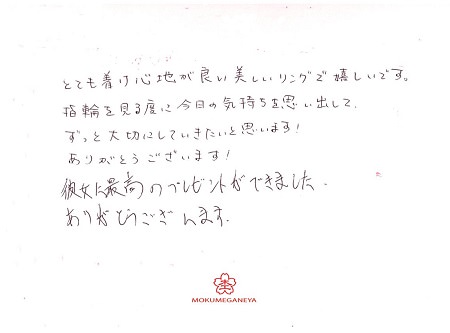 とても着け心地が良い美しいリングで嬉しいです。
指輪を見る度に今日の気持ちを思い出して、
ずっと大切にしていきたいと思います!
ありがとうございます!
彼女に最高のプレゼントができました.
ありがとうございます.
MOKUMEGANEYA